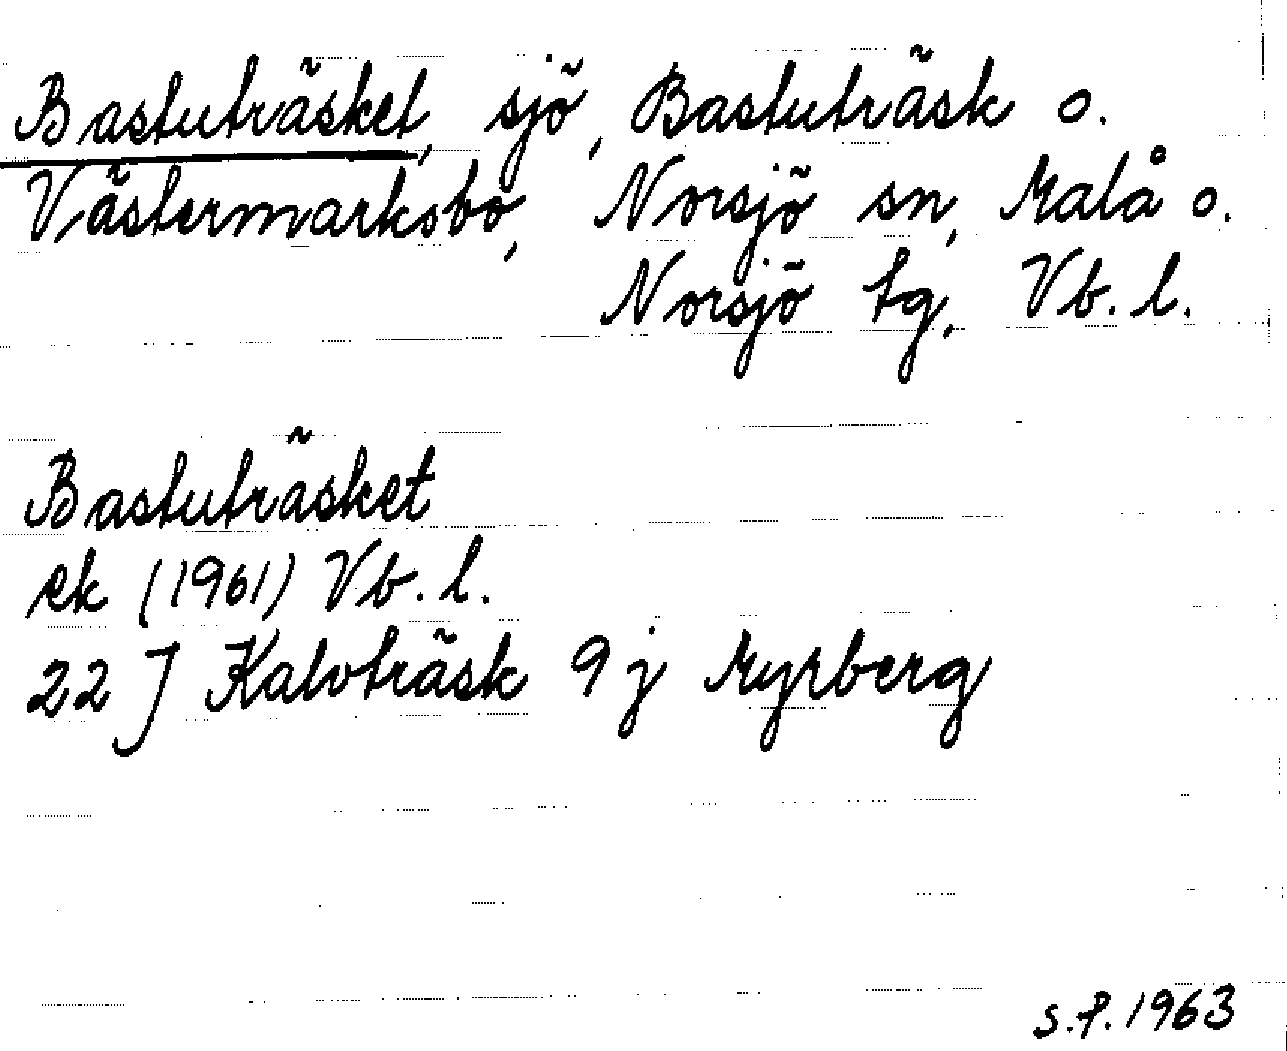 Bastuträsket, sjö, Bastuträsk o.
Västermarksbo, Norsjö sn, Malå o.
Norsjö tg, Vb. l.
Bastuträsket
ek (1961) Vb. l.
22 J Kalvträsk 9 j Myrberg
s.f. 1963